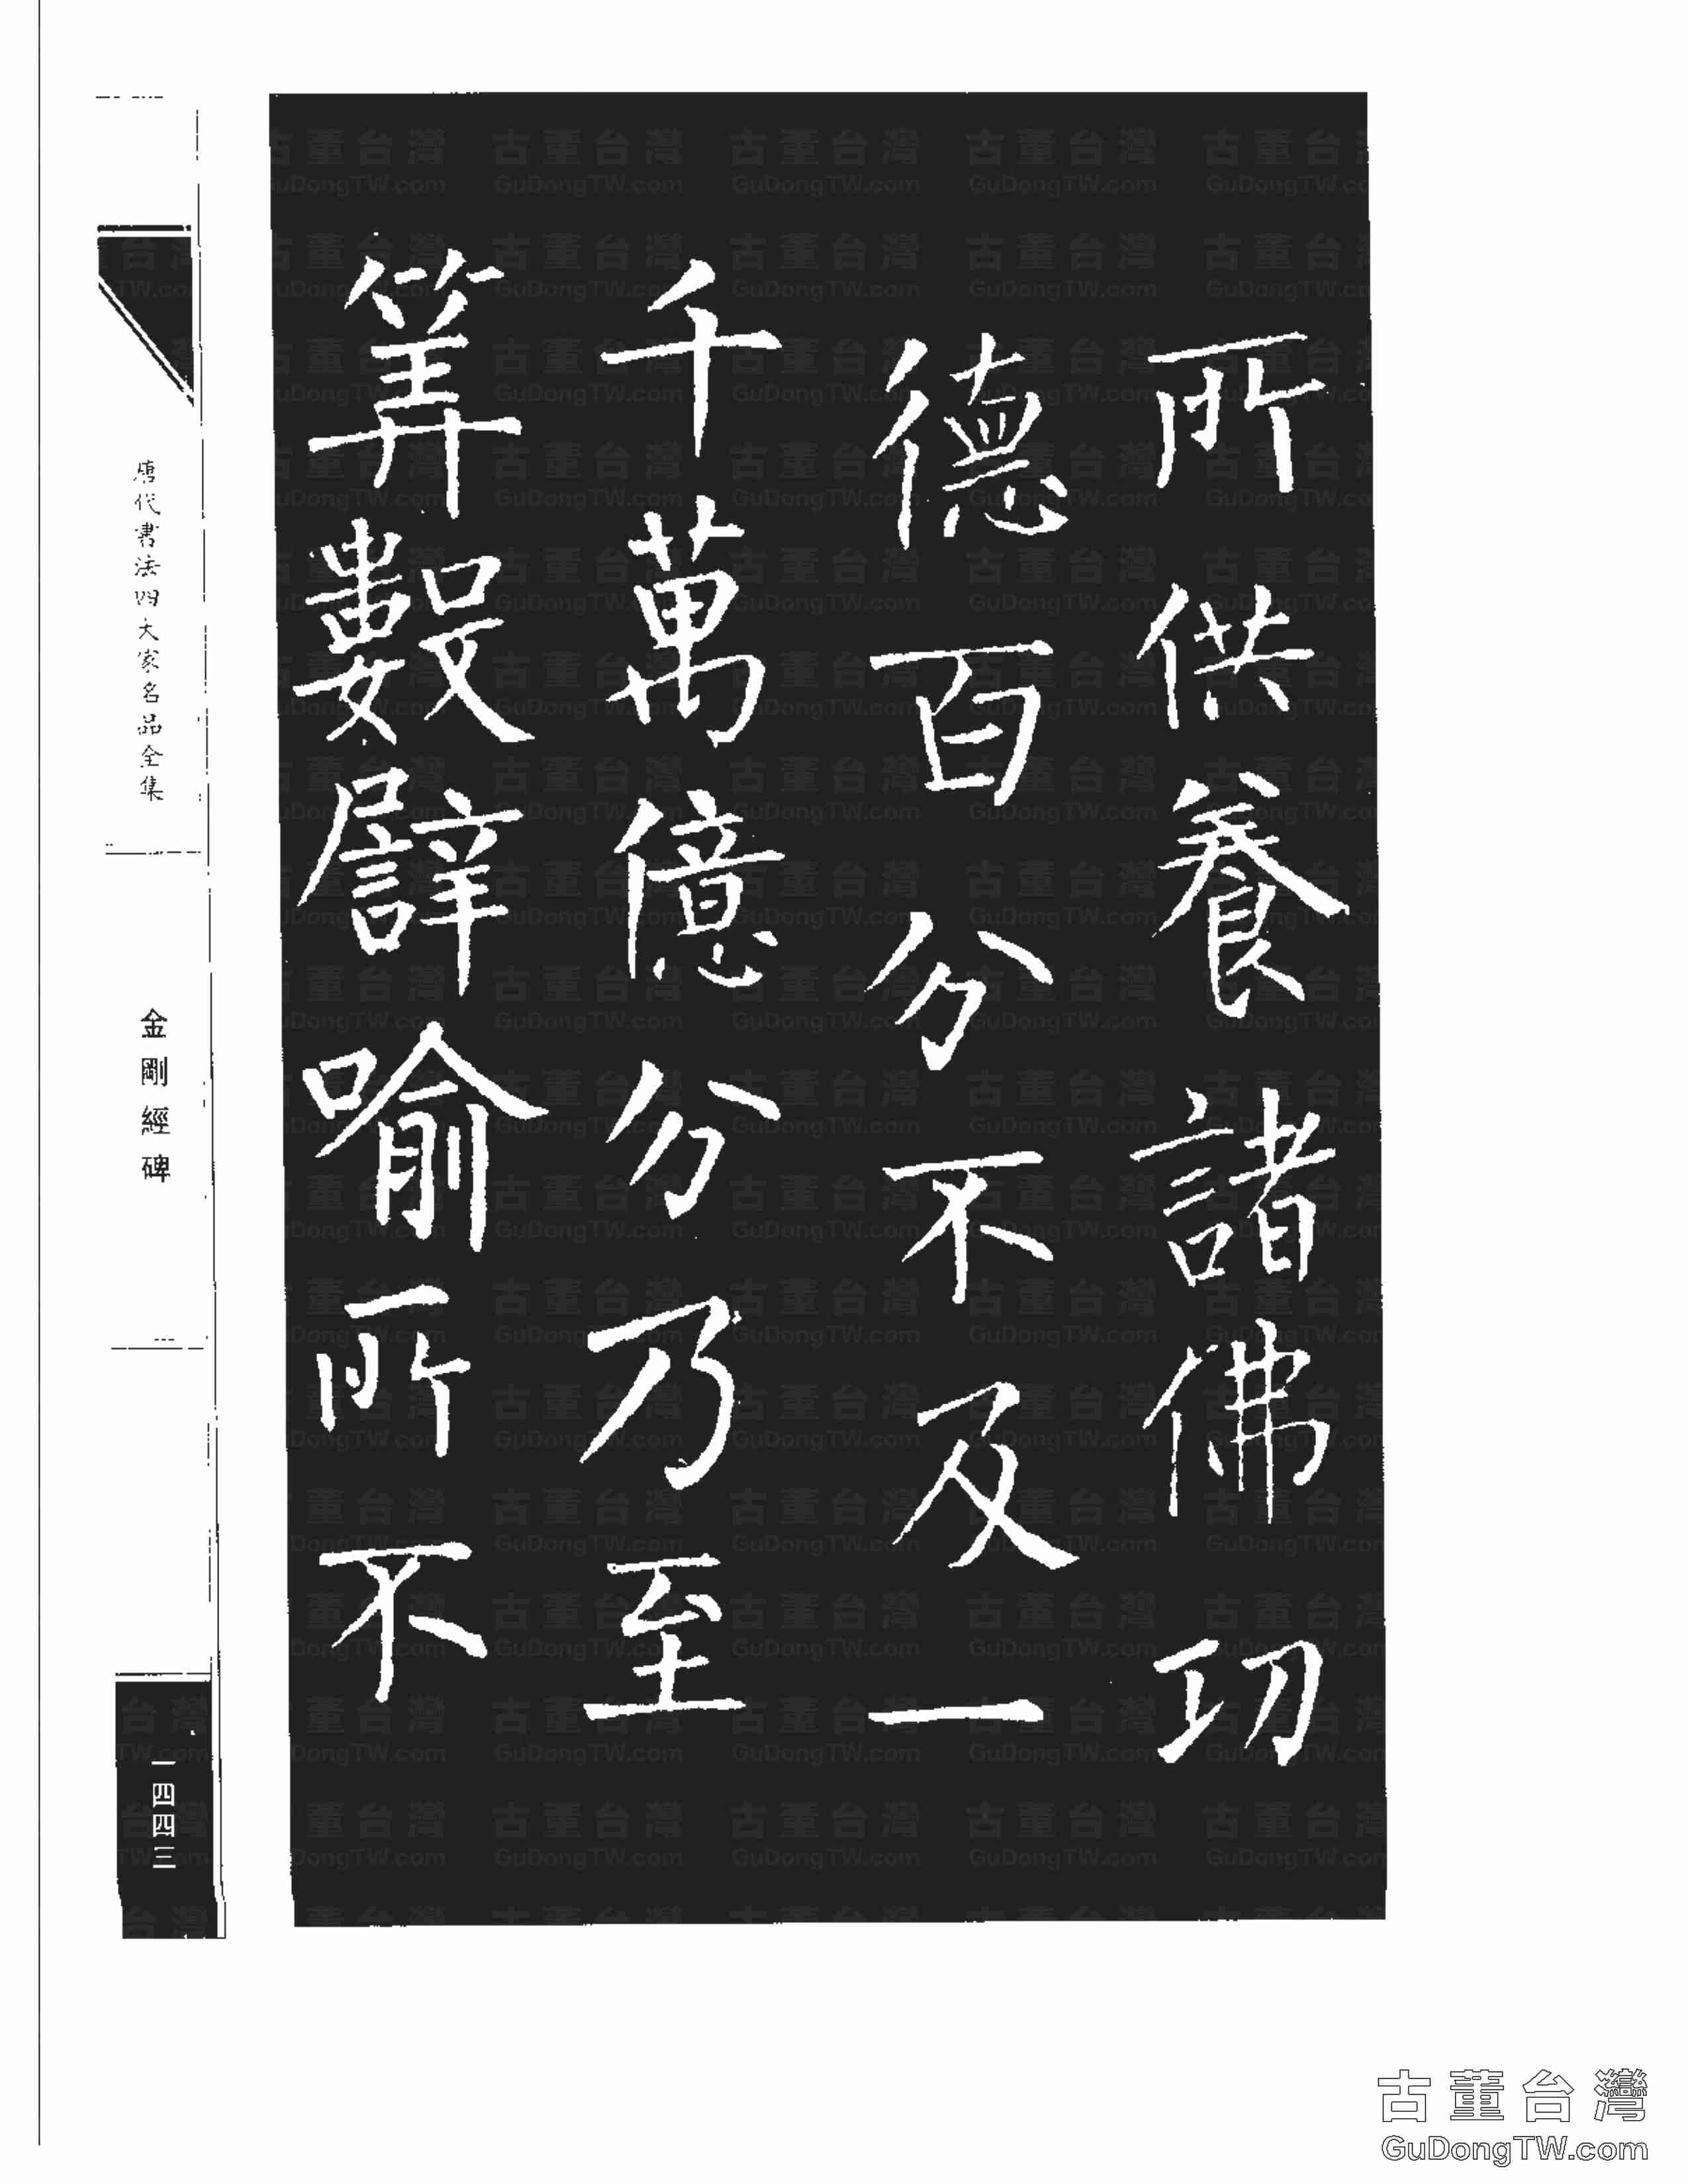 所供養諸佛功
德百分不及一
千萬億分乃至
筭數譬喻所不
唐代書法四大家名品全集
金剛經碑
一四四三
古董台灣
GuDongTW.com